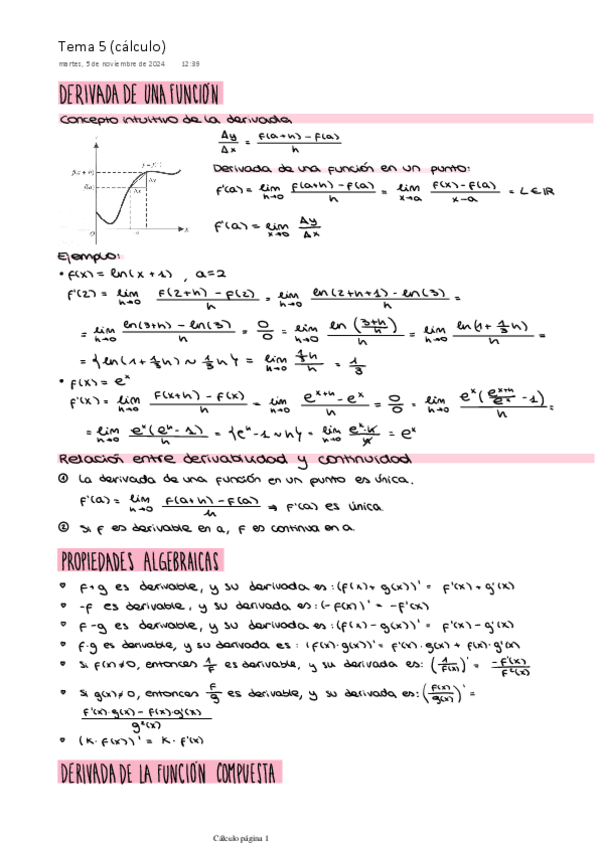 Tema 5 (cálculo)
martes, 5 de noviembre de 2024 12:39
DERIVADA DE UNA FUNCIÓN
Concepto intuitivo de la derivada
Δy/Δx = (f(a+h) - f(a))/h
Derivada de una función en un punto:
f'(a) = lim h→0 (f(a+h) - f(a))/h = lim x→a (f(x) - f(a))/(x-a) = L ∈ ℝ
f'(a) = lim x→0 Δy/Δx
Ejemplo:
• f(x) = ln(x+1), a=2
f'(2) = lim h→0 (f(2+h) - f(2))/h = lim h→0 (ln(2+h+1) - ln(3))/h =
= lim h→0 (ln(3+h) - ln(3))/h = 0/0 = lim h→0 ln((3+h)/h)/h = lim h→0 ln(1+1/3 h)/h =
= {ln(1+1/3 h) ~ 1/3 h} = lim h→0 (1/3 h)/h = 1/3
• f(x) = eˣ
f'(x) = lim h→0 (f(x+h) - f(x))/h = lim h→0 (eˣ⁺ʰ - eˣ)/h = 0/0 = lim h→0 eˣ(eˣ⁺ʰ/eˣ - 1)/h =
= lim h→0 eˣ(eʰ - 1)/h = {eʰ - 1 ~ h} = lim h→0 (eˣ·h)/h = eˣ
Relación entre derivabilidad y continuidad
① La derivada de una función en un punto es única.
f'(a) = lim h→0 (f(a+h) - f(a))/h → f'(a) es única
② Si f es derivable en a, f es continua en a.
PROPIEDADES ALGEBRAICAS
• f+g es derivable, y su derivada es: (f(x) + g(x))' = f'(x) + g'(x)
• -f es derivable, y su derivada es: (-f(x))' = -f'(x)
• f-g es derivable, y su derivada es: (f(x) - g(x))' = f'(x) - g'(x)
• f·g es derivable, y su derivada es: (f(x)·g(x))' = f'(x)·g(x) + f(x)·g'(x)
• Si f(x)≠0, entonces 1/f es derivable, y su derivada es: (1/f(x))' = -f'(x)/f²(x)
• Si g(x)≠0, entonces f/g es derivable, y su derivada es: (f(x)/g(x))' =
(f'(x)·g(x) - f(x)·g'(x))/g²(x)
• (K·f(x))' = K·f'(x)
DERIVADA DE LA FUNCIÓN COMPUESTA
Cálculo página 1